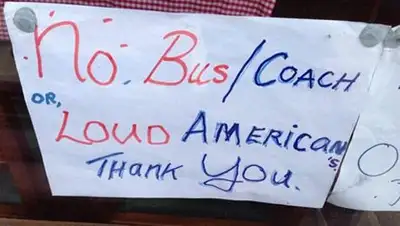 No. Bus/COACH
OR,
LOUD AMERICAN's.
THANK YOU.